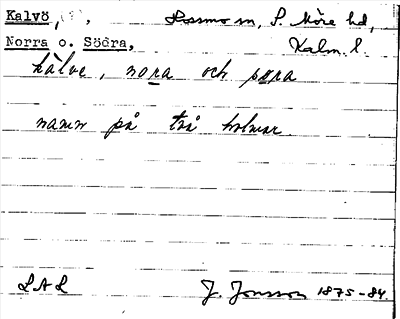 Kalvö, Rossmo sn, S. Möre hd,
Norra o. Södra, Kalm. l.
kalve, nora och söra
namn på två holmar
LAL J. Jonsson 1875-84.